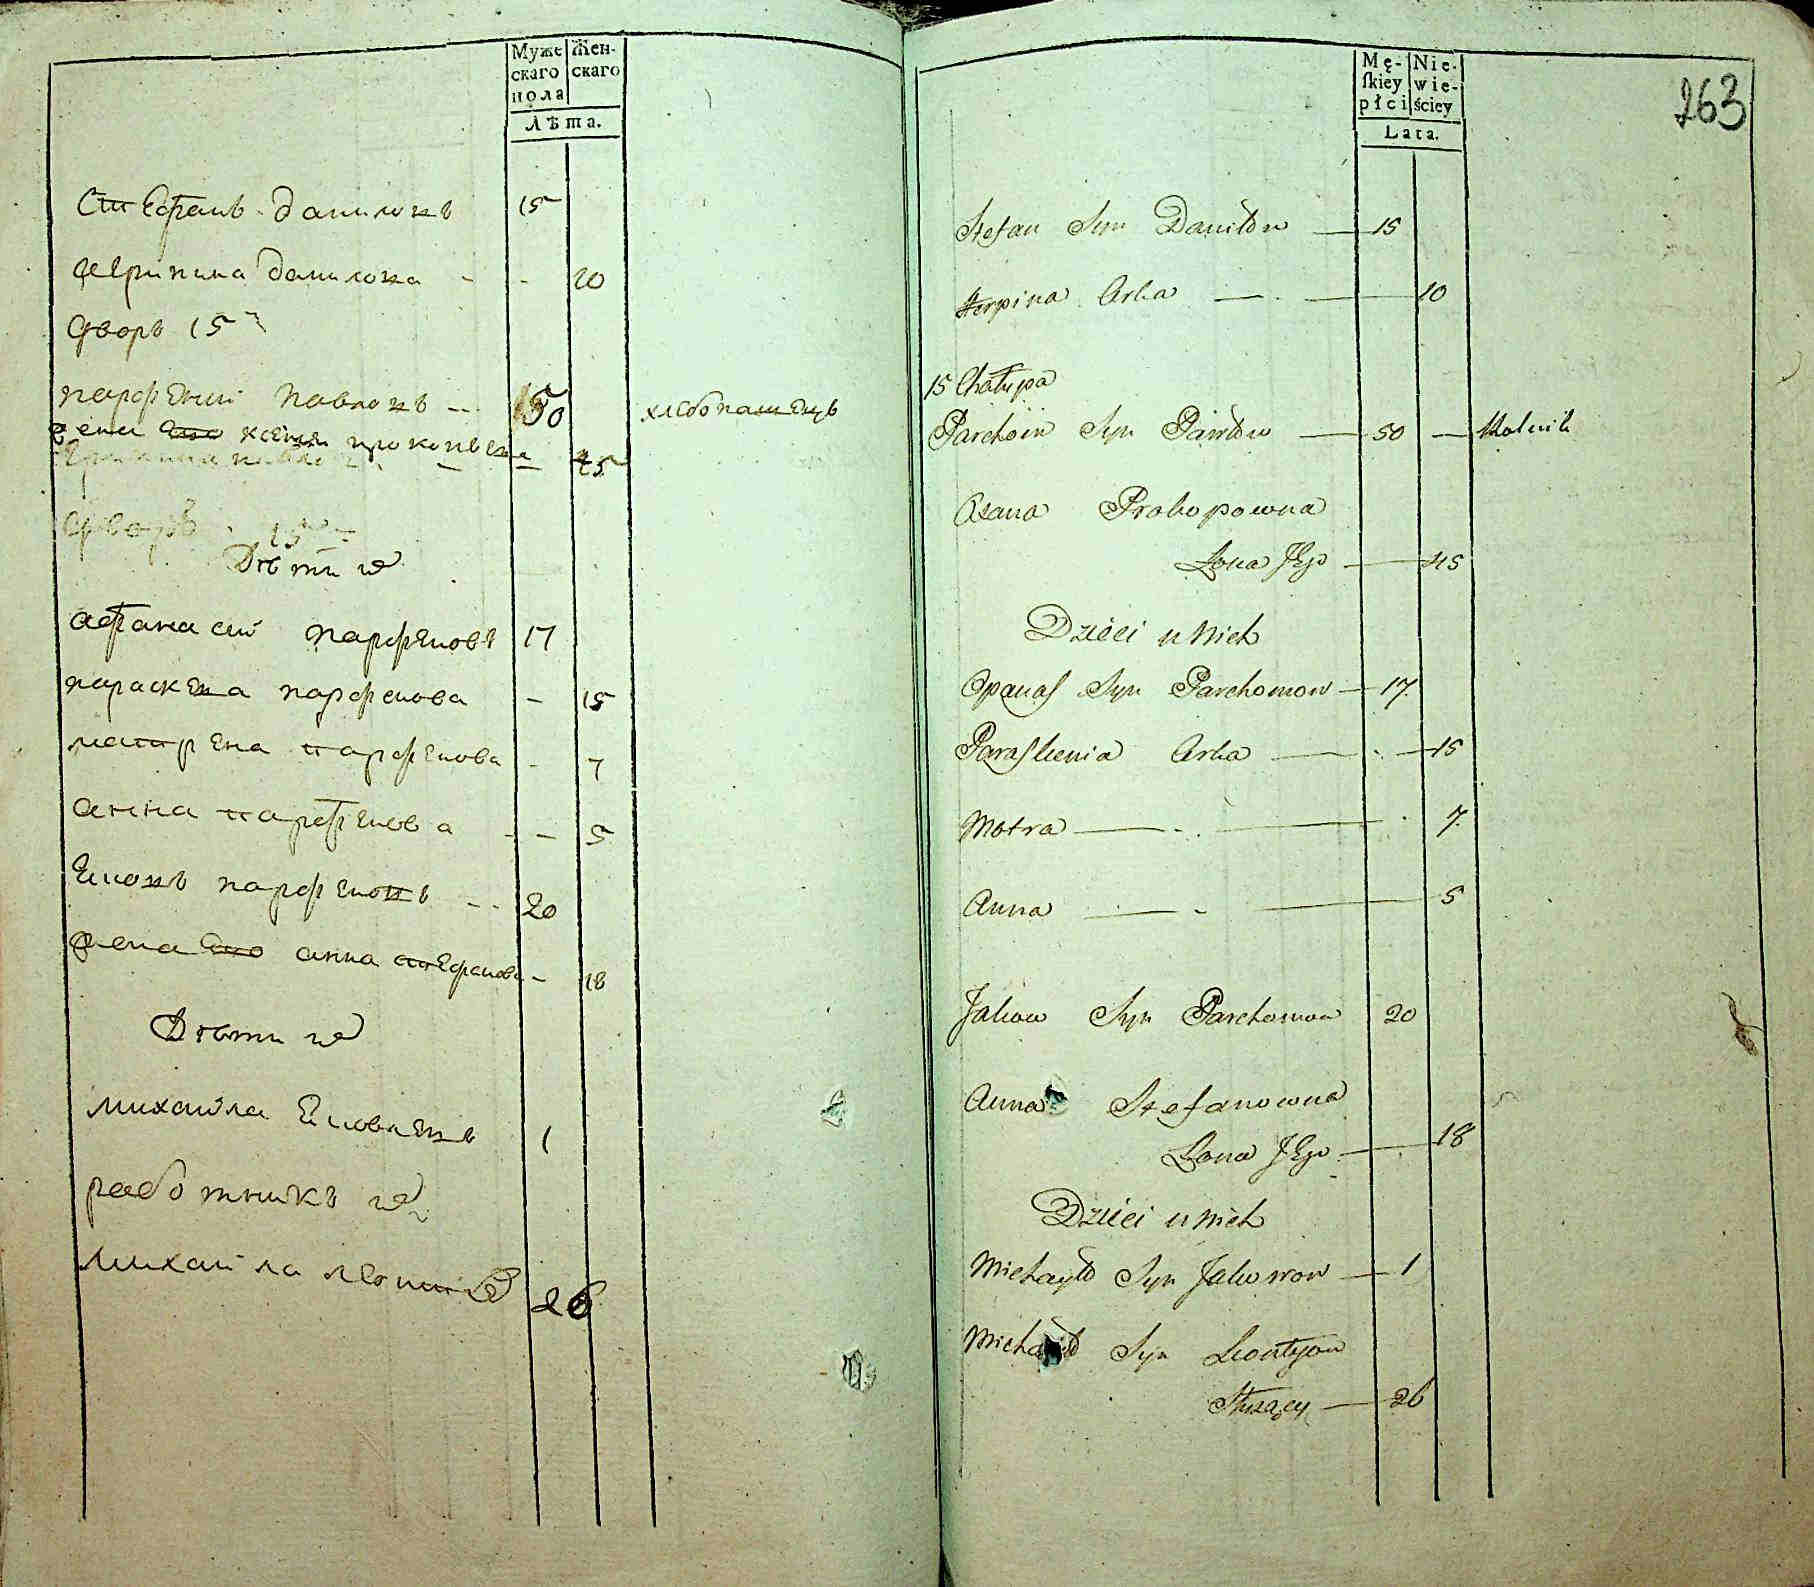 Муже
скаго
пола
Жен-
скаго
Лѣта.
Стефанъ Даниловъ 15
Агрипина Данилова - - 20
Дворъ 15
Парфений Павловъ -- 50 хлебопашецъ
жена его Ксения Прокопьева 45
Дворъ 15
Дѣти ихъ
Афанасий Парфеновъ 17
Параскева Парфенова - 15
Матрена Парфенова - 7
Анна Парфенова - - 5
Парфеновъ -- 20
жена его Анна Стефанова - 18
Дѣти ихъ
Михайла 1
работникъ их
Михайла 26
263
Mę-
skiey
płci
Nie-
wie-
ściey
Lata.
Stefan Syn Daniłow — 15
Herpina Crka — 10
15 Chałupa
Parchom Syn Pawłow — 50 — Rolnik
Oxana Prokopowna
Żona Jego — 45
Dzieci u Nich
Opanas Syn Parchomow — 17
Paraskewia Crka — 15
Motra — 7
Anna — 5
Jakow Syn Parchomow 20
Anna Stefanowna
Żona Jego — 18
Dzieci u Nich
Michayło Syn Jakowow — 1
Michayło Syn Leontyow
Służący — 26